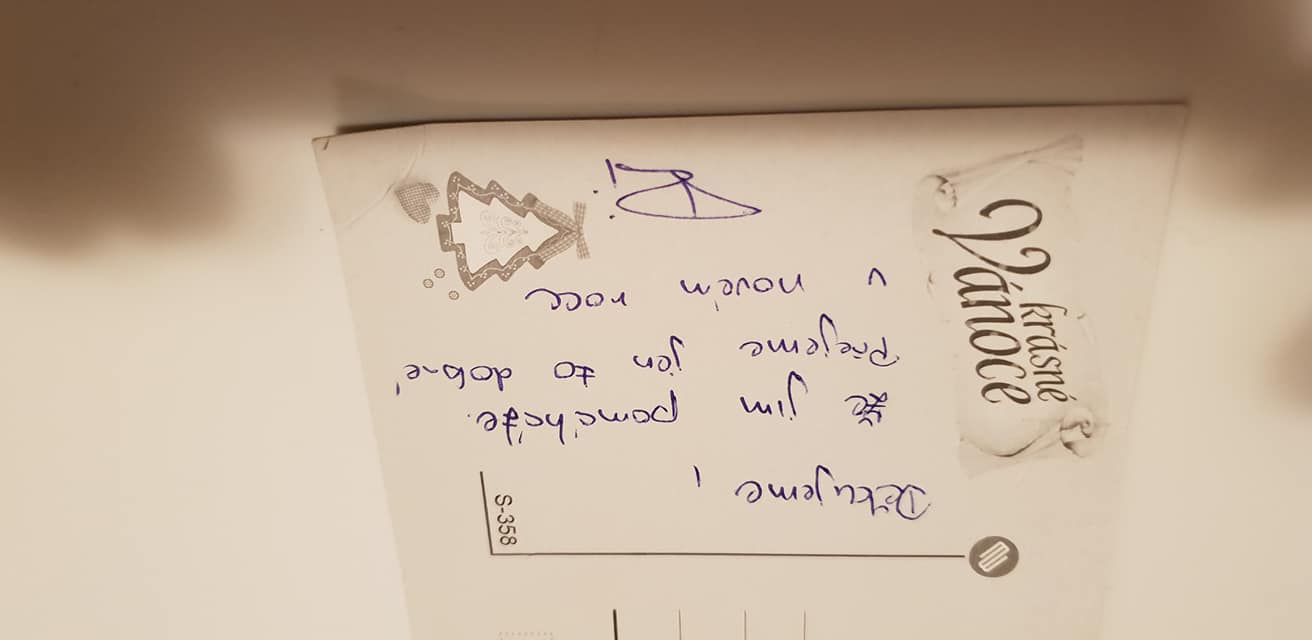 krásné
Vánoce
S-358
Děkujeme,
že jim pomáháte.
Přejeme jen to dobré
v novém roce